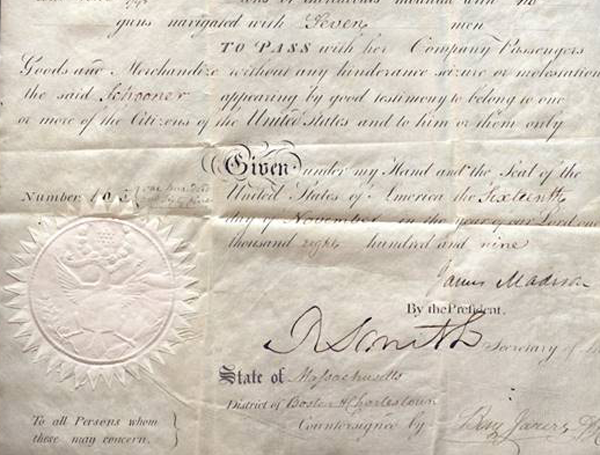 guns navigated with Seven men
TO PASS with her Company Passengers
Goods and Merchandize without any hinderance seizure or molestation
the said Schooner appearing by good testimony to belong to one
or more of the Citizens of the United States and to him or them only
Given under my Hand and the Seal of the
Number 163 one hundred and sixty three
United States of America the Sixteenth
day of November in the year of our Lord one
thousand eight hundred and nine
James Madison
By the President.
R Smith Secretary of
State of Massachusetts
District of Boston & Charlestown
To all Persons whom
these may concern.
Countersigned by